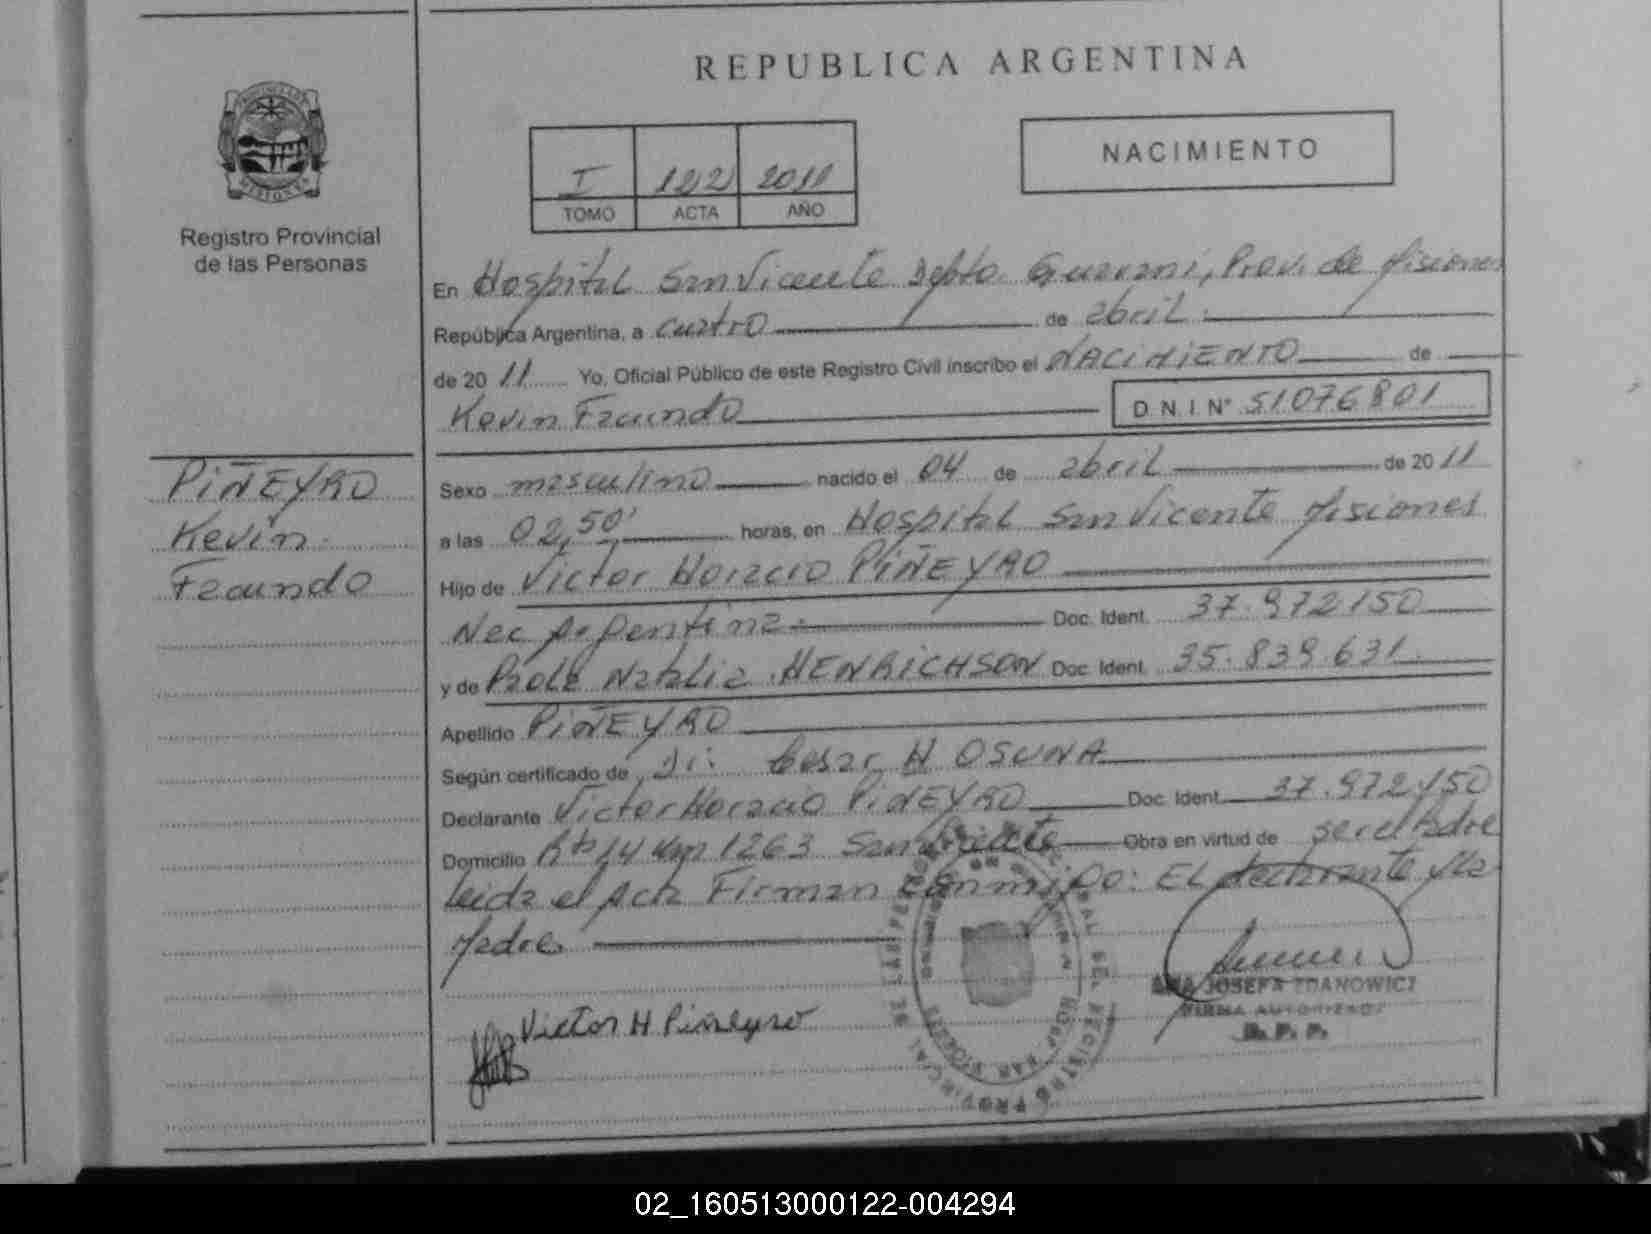 REPUBLICA ARGENTINA
PROVINCIA DE
MISIONES
Registro Provincial
de las Personas
I 122 2011
TOMO ACTA AÑO
NACIMIENTO
En Hospital San Vicente Depto Guarani, Prov. de Misiones
República Argentina, a cuatro de abril.
de 20 11 Yo, Oficial Público de este Registro Civil inscribo el NACIMIENTO de
Kevin Facundo D. N. I. N° 51076801
PIÑEYRO
Kevin
Facundo
Sexo masculino nacido el 04 de abril de 20 11
a las 02,50' horas, en Hospital San Vicente Misiones
Hijo de Victor Horacio PIÑEYRO
Nac Argentina Doc. Ident. 37.972150
y de Natalia HENRICHSON Doc. Ident. 35.839.631
Apellido PIÑEYRO
Según certificado de Cesar H OSUNA
Declarante Victor Horacio PIÑEYRO Doc. Ident. 37.972.150
Domicilio Rta 14 Km 1263 San Vicente Obra en virtud de ser el Padre
Leida el Acta Firman conmigo: El declarante y la
Madre
Victor H Piñeyro
ANA JOSEFA ZDANOWICZ
FIRMA AUTORIZADA
R. P. P.
02_160513000122-004294